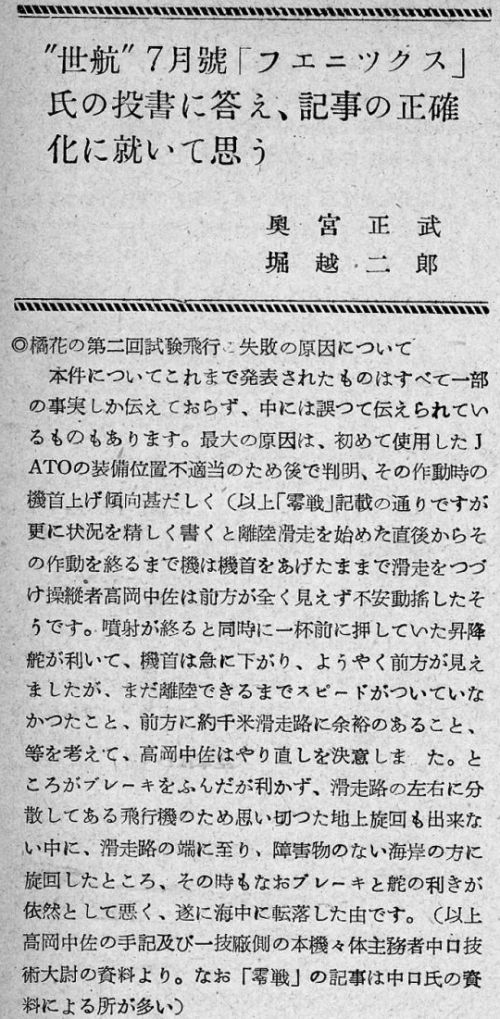 "世航"7月號「フエニツクス」
氏の投書に答え、記事の正確
化に就いて思う
奥宮正武
堀越二郎
◎橘花の第二回試験飛行 失敗の原因について
本件についてこれまで発表されたものはすべて一部
の事実しか伝えておらず、中には誤つて伝えられてい
るものもあります。最大の原因は、初めて使用したJ
ATOの装備位置不適当のため後で判明、その作動時の
機首上げ傾向甚だしく(以上「零戦」記載の通りですが
更に状況を精しく書くと離陸滑走を始めた直後からそ
の作動を終るまで機は機首をあげたままで滑走をつづ
け操縦者高岡中佐は前方が全く見えず不安動搖したそ
うです。噴射が終ると同時に一杯前に押していた昇降
舵が利いて、機首は急に下がり、ようやく前方が見え
ましたが、まだ離陸できるまでスピードがついていな
かつたこと、前方に約千米滑走路に余裕のあること、
等を考えて、高岡中佐はやり直しを決意しま た。と
ころがブレーキをふんだが利かず、滑走路の左右に分
散してある飛行機のため思い切つた地上旋回も出来な
い中に、滑走路の端に至り、障害物のない海岸の方に
旋回したところ、その時もなおブレーキと舵の利きが
依然として悪く、遂に海中に転落した由です。(以上
高岡中佐の手記及び一技廠側の本機々体主務者中口技
術大尉の資料より。なお「零戦」の記事は中口氏の資
料による所が多い)